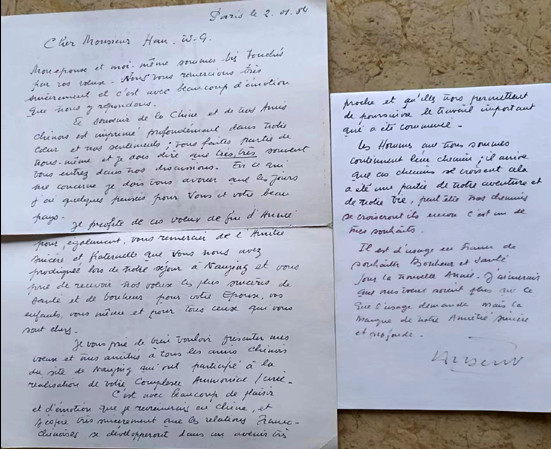 Paris le 2.01.84
Cher Monsieur Han. W.G.
Mon epouse et moi-même sommes très touchés
par vos voeux. Nous vous remercions très
sincèrement et c'est avec beaucoup d'émotion
que nous y repondons.
Le souvenir de la Chine et de nos Amis
chinois est imprimé profondement dans notre
coeur et nos sentiments; vous faites partie de
nous-même et je dois dire que très, très souvent
vous entrez dans nos discussions. En ce qui
me concerne je dois vous avouer que les jours
j'ai quelques pensées pour vous et votre beau
pays.
Je profite de ces voeux de fin d'Année
pour, également, vous remercier de l'Amitié
sincère et fraternelle que vous nous avez
prodiguée lors de notre séjour à Nanjing et vous
prie de recevoir nos voeux les plus sincères de
santé et de bonheur pour votre Epouse, vos
enfants, vous même et pour tous ceux qui vous
sont chers.
Je vous prie de bien vouloir presenter mes
voeux et mes amitiés à tous les amis chinois
du site de Nanjing qui ont participé à la
réalisation de votre Complexe Ammoniac/urée.
C'est avec beaucoup de plaisir
et d'émotion que je reviendrais en chine, et
j'espère très sincèrement que les relations Franco-
chinoises se développeront dans un avenir très
proche et qu'elles nous permettront
de poursuivre le travail important
qui a été commencé.
Les Hommes que nous sommes
continuent leur chemin; il arrive
que ces chemins se croisent cela
a été une partie de notre aventure et
de notre vie, peut être nos chemins
se croiseront ils encore c'est un de
mes souhaits.
Il est d'usage en France de
souhaiter Bonheur et Santé
pour la nouvelle Année. J'aimerais
que mes voeux soient plus que ce
que l'usage demande mais la
marque de notre Amitié sincère
et profonde.